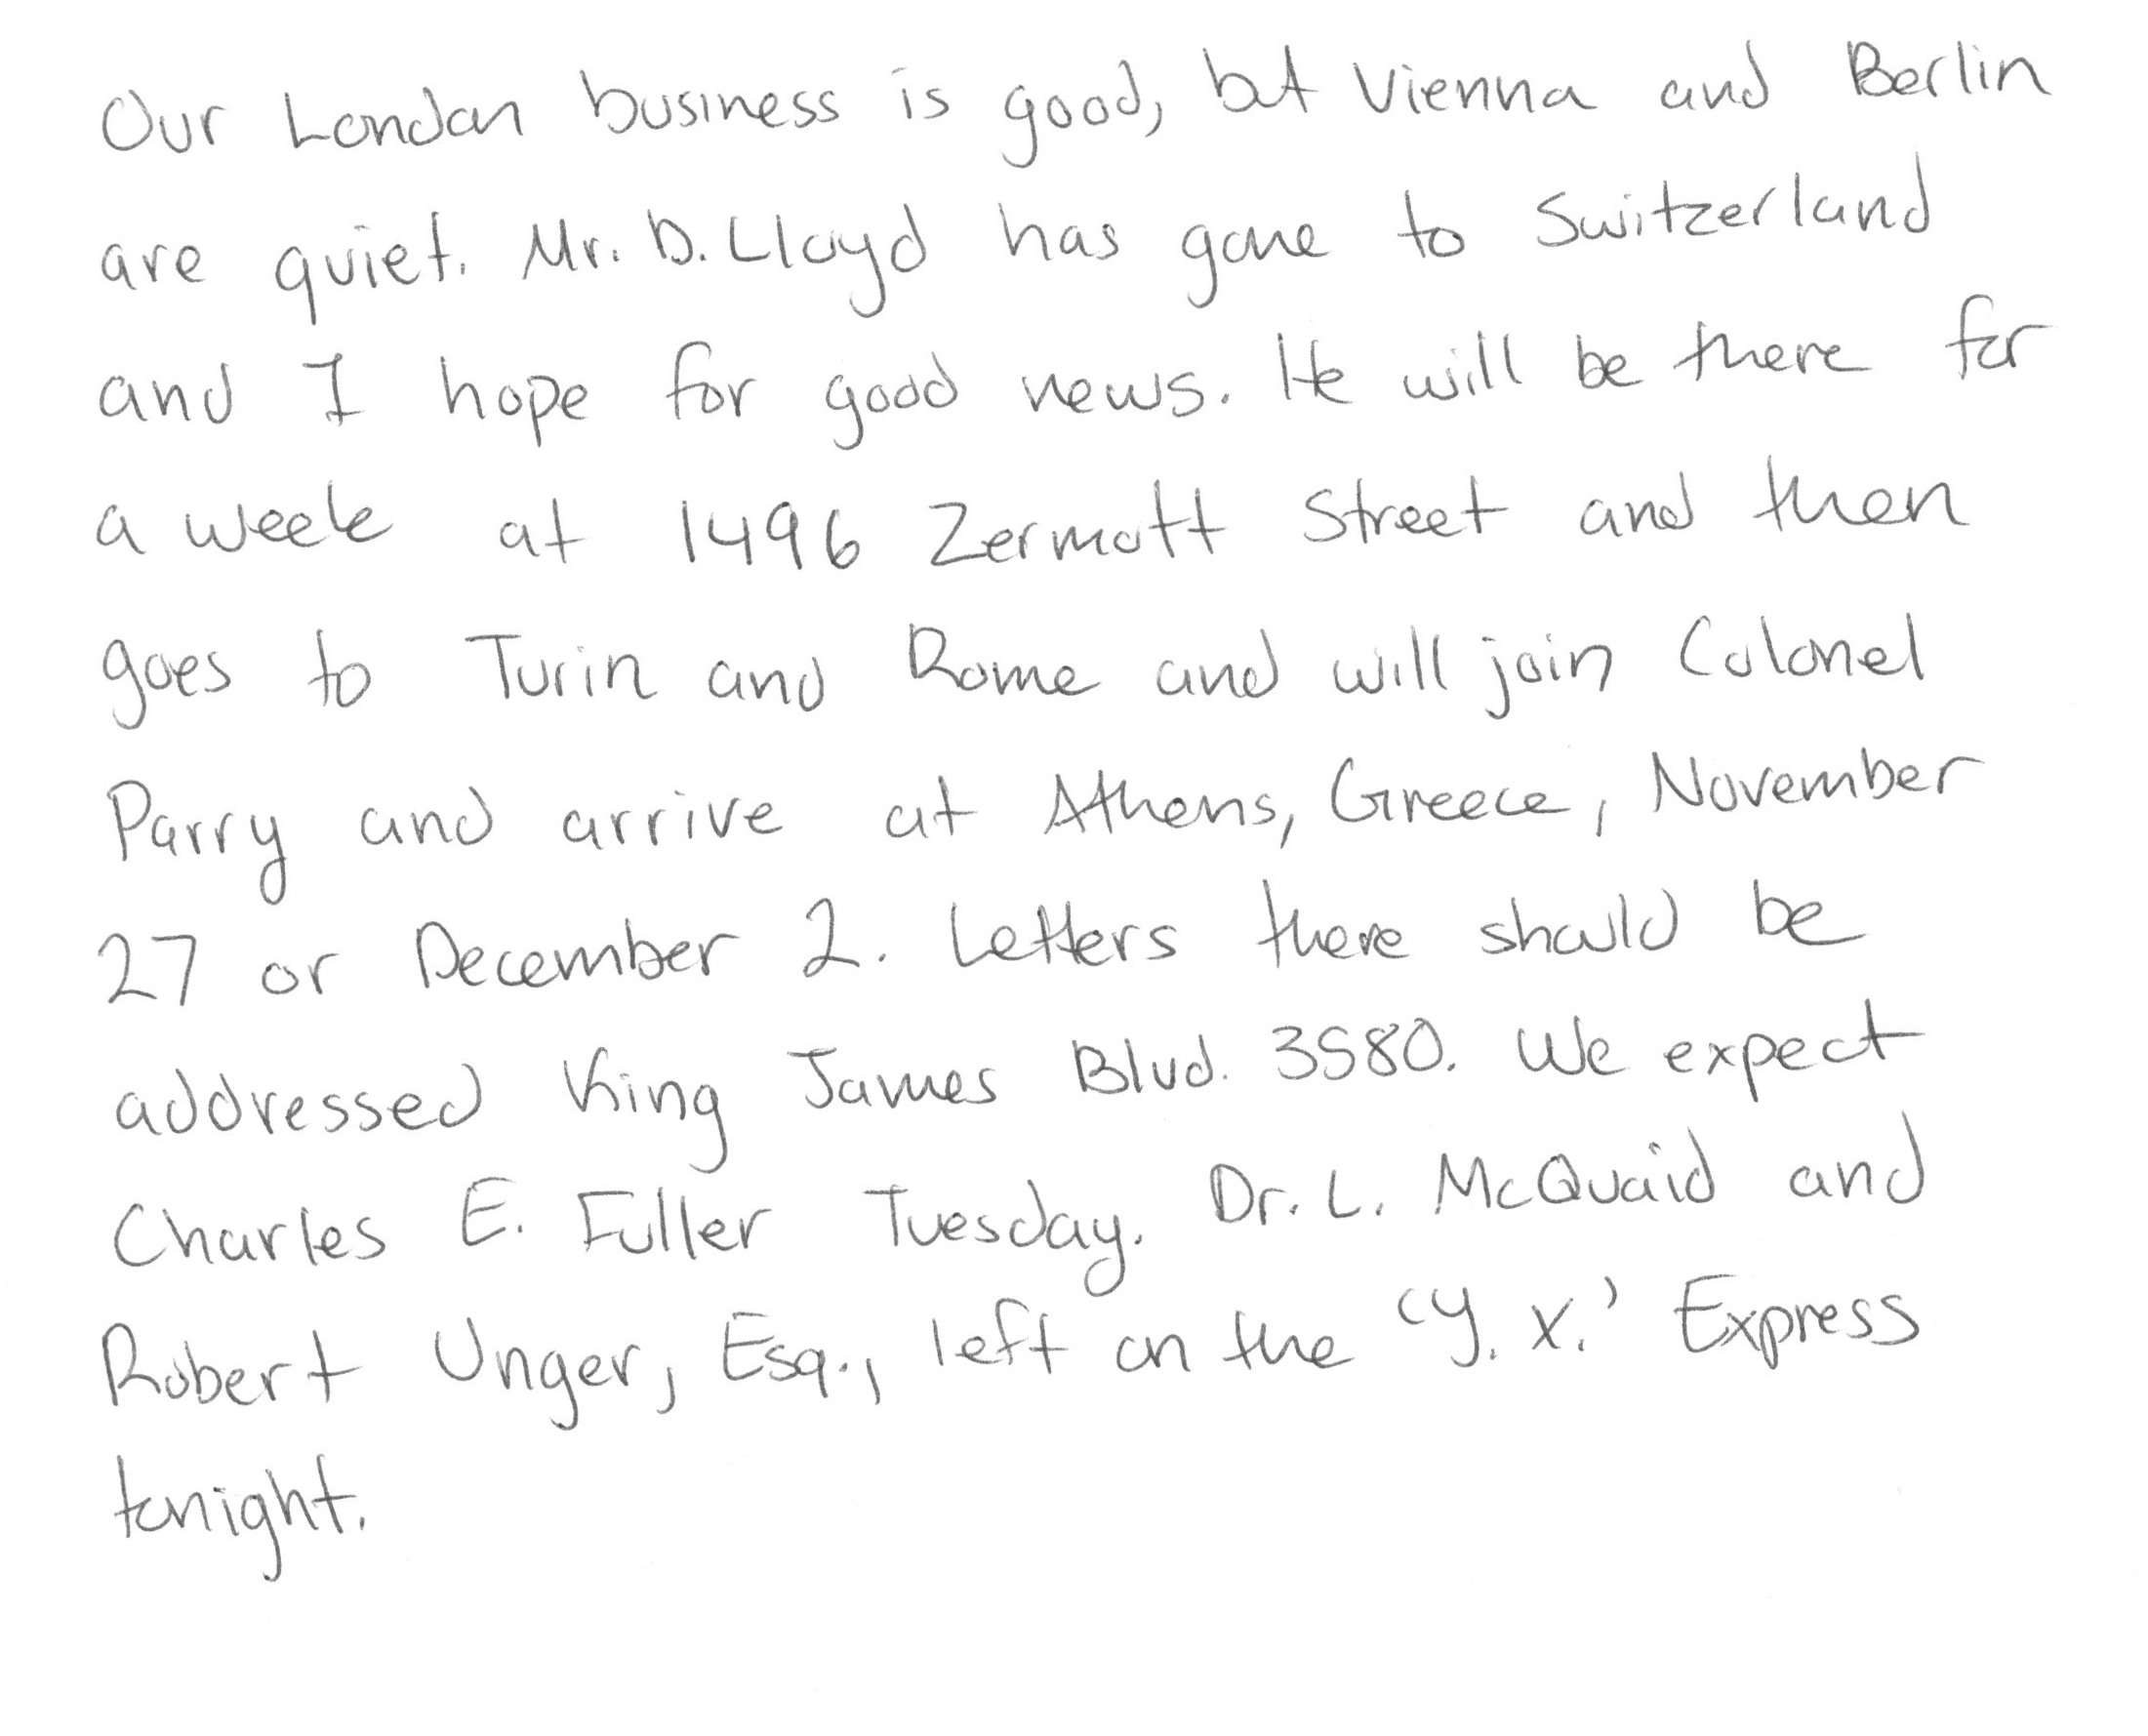 Our London business is good, but Vienna and Berlin
are quiet. Mr. D. Lloyd has gone to Switzerland
and I hope for good news. He will be there for
a week at 1496 Zermott Street and then
goes to Turin and Rome and will join Colonel
Parry and arrive at Athens, Greece, November
27 or December 2. Letters there should be
addressed King James Blvd. 3580. We expect
Charles E. Fuller Tuesday. Dr. L. McQuaid and
Robert Unger, Esq., left on the 'Y. X.' Express
tonight.